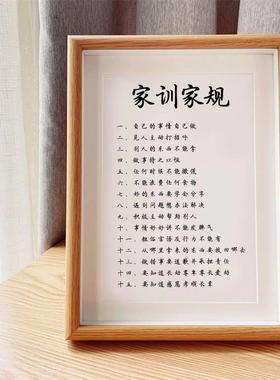 家训家规
一、自己的事情自己做
二、见人主动打招呼
三、别人的东西不能拿
四、做事持之以恒
五、任何时候不能撒谎
六、不能浪费任何食物
七、好的东西要学会分享
八、遇到问题想办法解决
九、积极主动帮助别人
十、事情好好讲不能发脾气
十一、粗俗言语及行为不能有
十二、从哪里拿来的东西要放回哪去
十三、做错事要道歉并承担责任
十四、要知道长幼尊卑尊长爱幼
十五、要知道感恩孝顺长辈